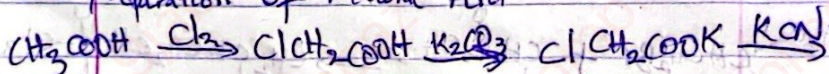 CH₃COOH —Cl₂→ ClCH₂COOH —K₂CO₃→ Cl CH₂COOK —KCN→